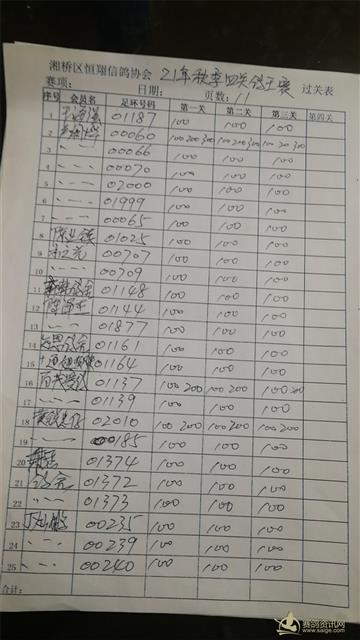 湘桥区恒翔信鸽协会 21年秋季四关鸽王赛 过关表
赛项: 日期: 页数: 11
序号 会员名 足环号码 第一关 第二关 第三关 第四关
1 01187 100 100 100
2 00060 100 200 300 100 200 300 100 200 300
3 00066 100 100 100
4 00070 100 100 100
5 02000 100 100 100
6 01999 100 100 100
7 00065 100 100 100
8 01025 100 100 100
9 00707 100 100 100
10 00709 100 100 100
11 01148 100 100 100
12 01144 100 100 100
13 01877 100 100 100
14 01161 100 100 100
15 01164 100 100 100
16 01137 100 200 100 200 100 200
17 01139 100 100 100
18 02010 100 200 100 200 100 200
19 00185 100 100 100
20 01374 100 100 100
21 01372 100 100 100
22 01373 100 100 100
23 00235 100 100 100
24 00239 100 100 100
25 00240 100 100 100
合计:
赛鸽资讯网
www.saige.com